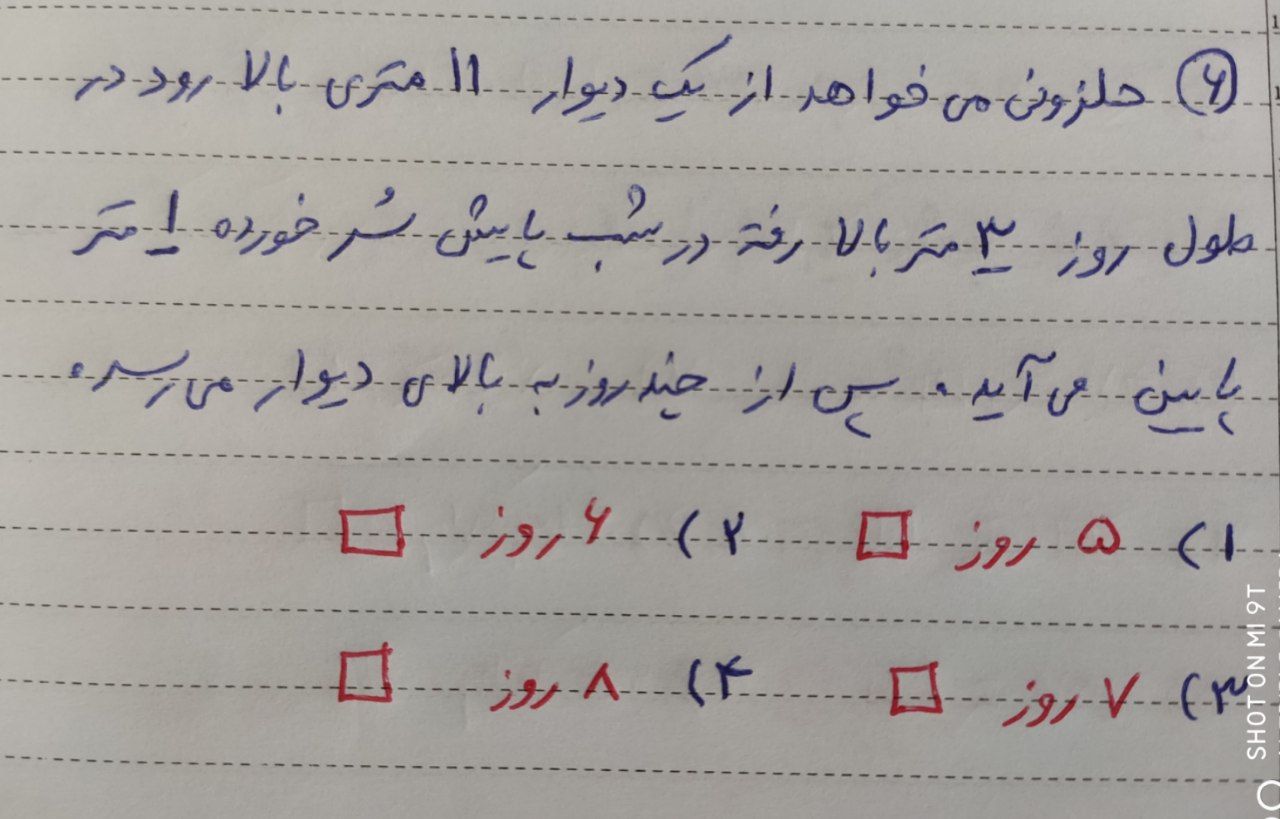 ۶ حلزونی می خواهد از یک دیوار ۱۱ متری بالا رود در
طول روز ۳ متر بالا رفته در شب پایش سُر خورده ۱ متر
پایین می آید. پس از چند روز به بالای دیوار می رسد.
۱) ۵ روز ۲) ۶ روز
۳) ۷ روز ۴) ۸ روز
SHOT ON MI 9T